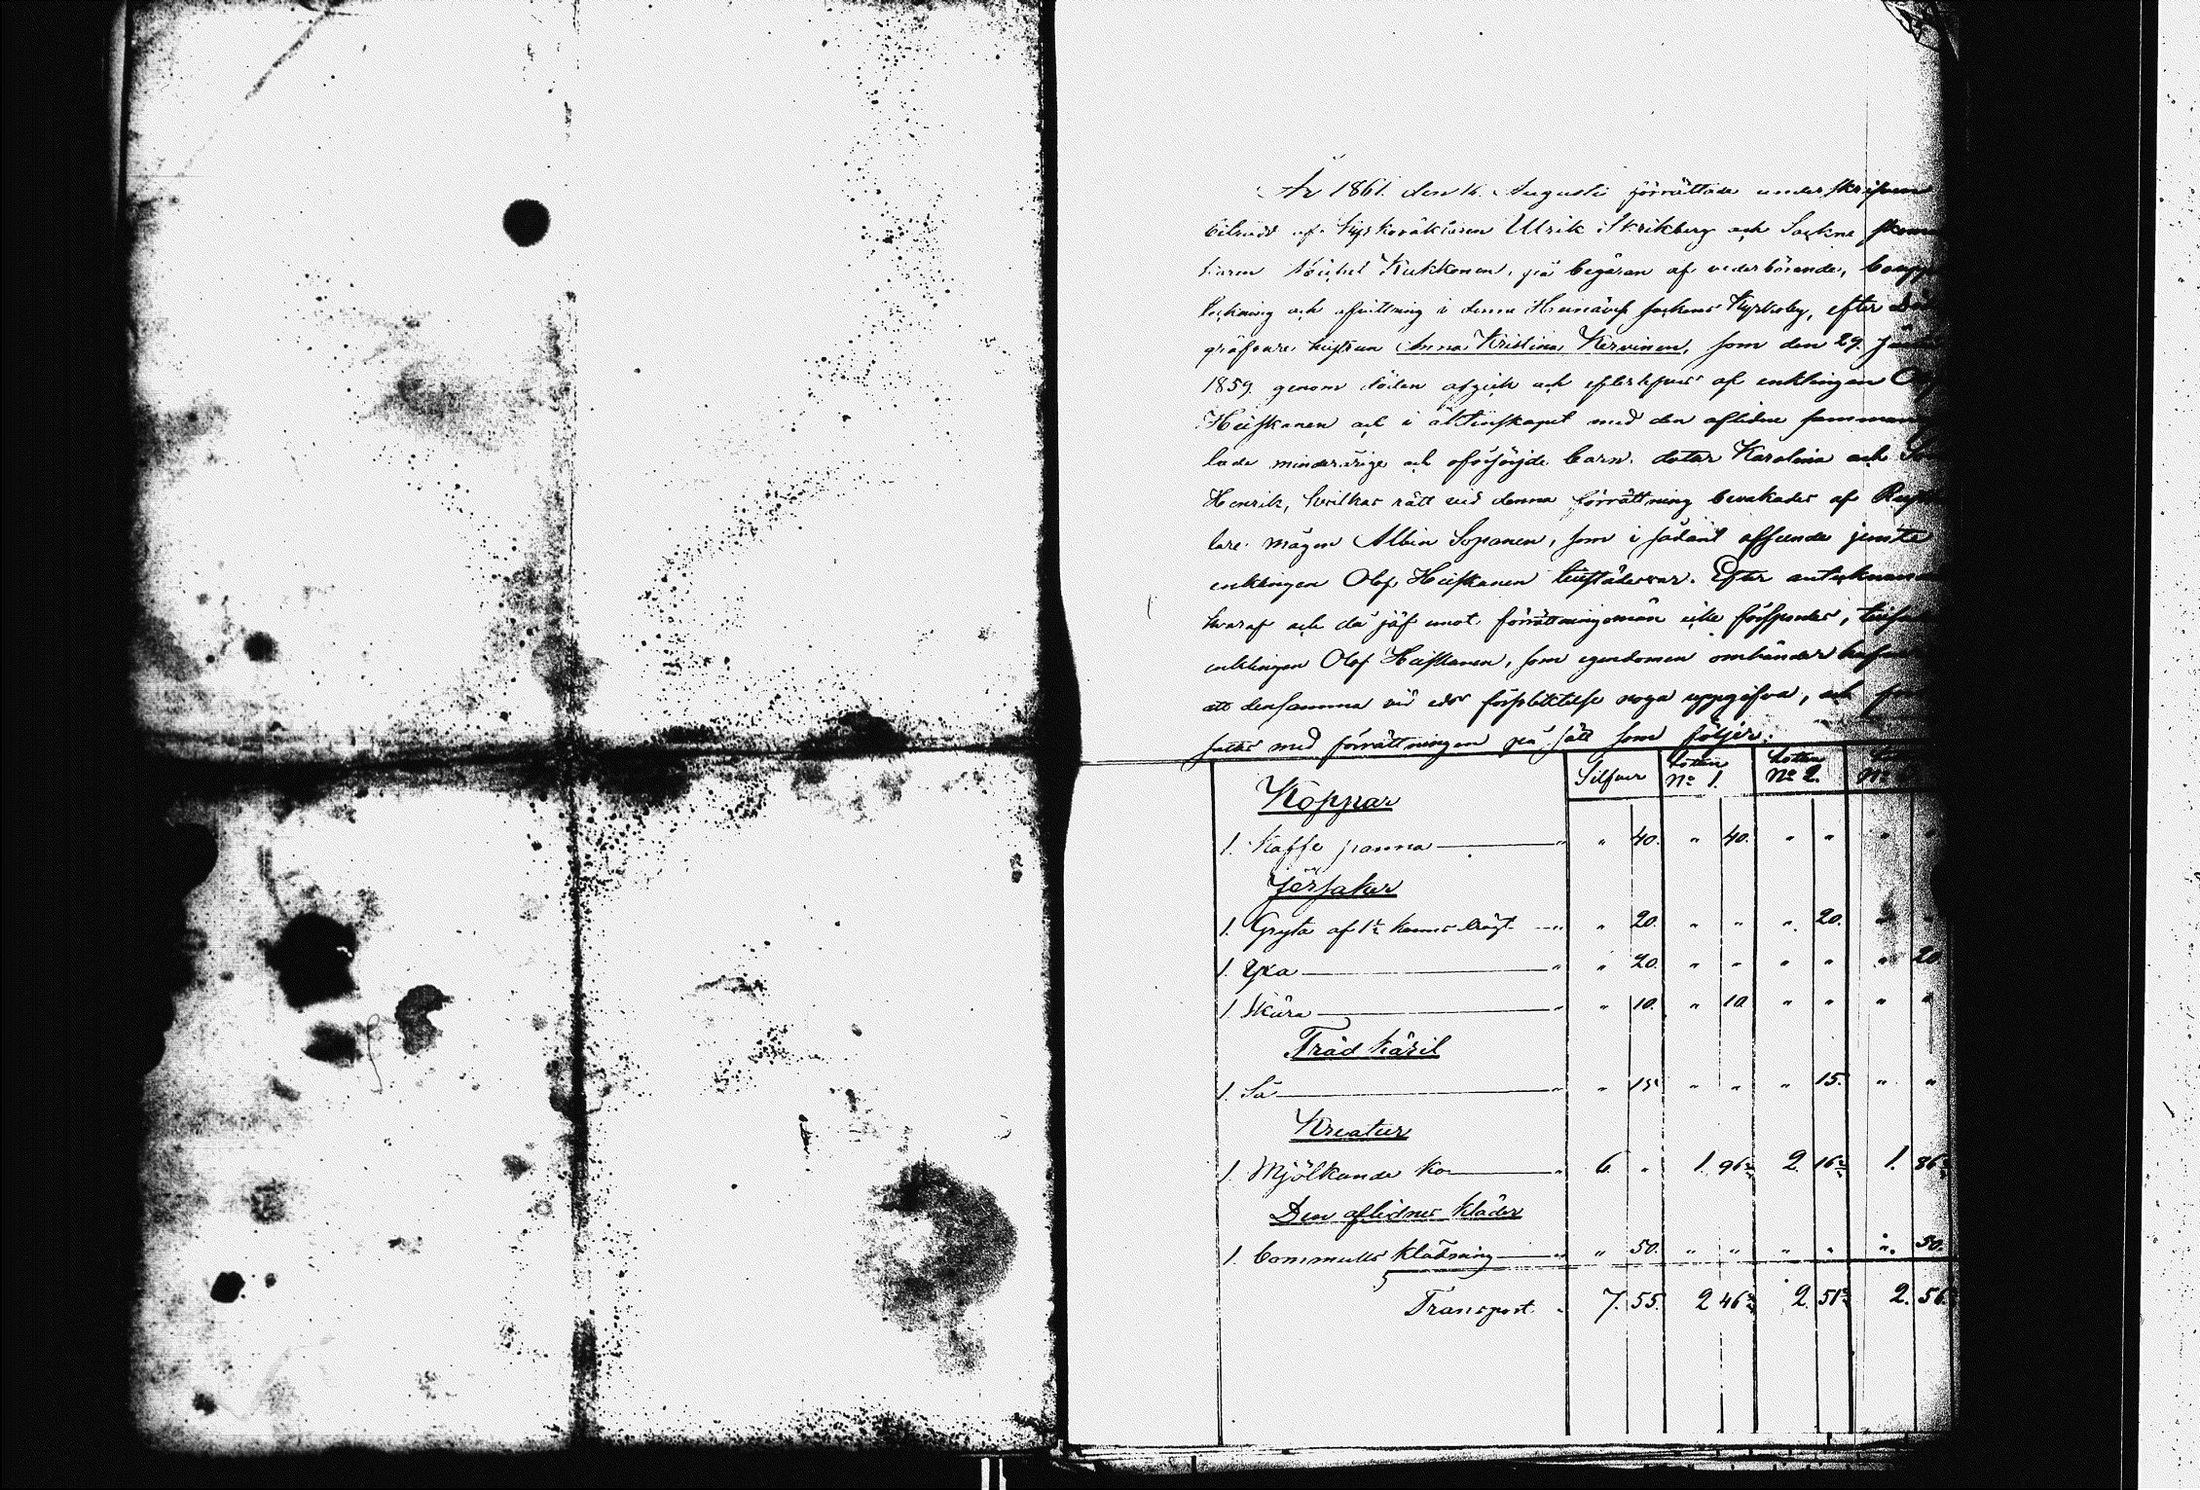 År 1861. den 16. Augusti förrättade underskrifven
biträdd af Kyrkoväktaren Ulrik Strikberg och Sockne
Kukkonen, på begäran af vederbörande,
och afvittring i denna Heinävesi sockens Kyrkoby, efter
gräfvare hustrun Anna Kristina Kervinen, som den 29.
1859 genom döden afgick och efterlefves af enklingen
Heiskanen och i äktenskapet med den aflidne samman
lade minderårige och oförsörjde barn: dotter Karolina och
Henrik, hvilkas rätt vid denna förrättning bevakades af
lare mågen Albin Sopanen, som i sådant afseende jemte
enklingen Olof Heiskanen tillstädesvar. Efter
häraf och då jäf emot förrättningsmän icke förspordes,
enklingen Olof Heiskanen, som egendomen omhänder
att densamma vid edsförpliktelse noga uppgifva, och
med förrättningen på sätt som följer:
Silfver Lotten N° 1. Lotten N° 2.
Koppar
1. Kaffe panna " 40. " 40. " " " "
Jersaker
1. Gryta af 1½ kannas drägt " 20. " " " 20. " "
1. Yxa " 20. " " " " " 20
1. Skära " 10. " 10. " " " "
Träd käril
1. Så " 15. " " " 15. " "
Kreatur
1. Mjölkande ko 6 " 1. 96 2. 16 1. 86
Den aflidnes kläder
1. bommulls klädning " 50. " " " " " 50.
Transport 7. 55. 2 46 2. 51 2. 56